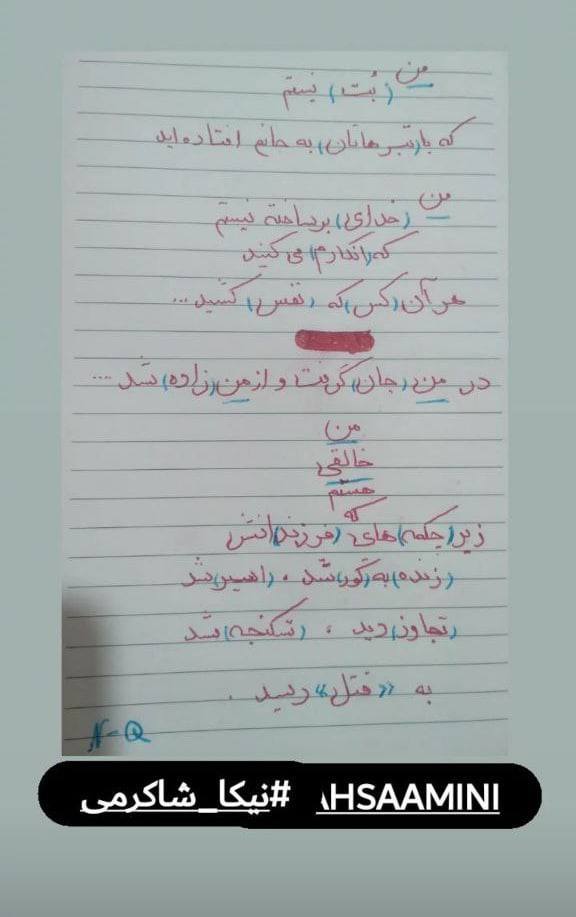 من
(بُت) نیستم
که با (تبرهاتان) به جانم افتاده‌اید
من
(خدای) برساخته نیستم
که (انکارم) می‌کنید
هر آن (کس) که (نفس) کشید ...
در من (جان) گرفت و از من (زاده) شد ...
من
خالقی
هستم
که
زیر (چکمه) های (فرزند) انش
(زنده) به (گور) شد ، (اسیر) شد
(تجاوز) دید ، (شکنجه) شد
به «قتل» رسید .
N-Q
#نیکا_شاکرمی AHSAAMINI